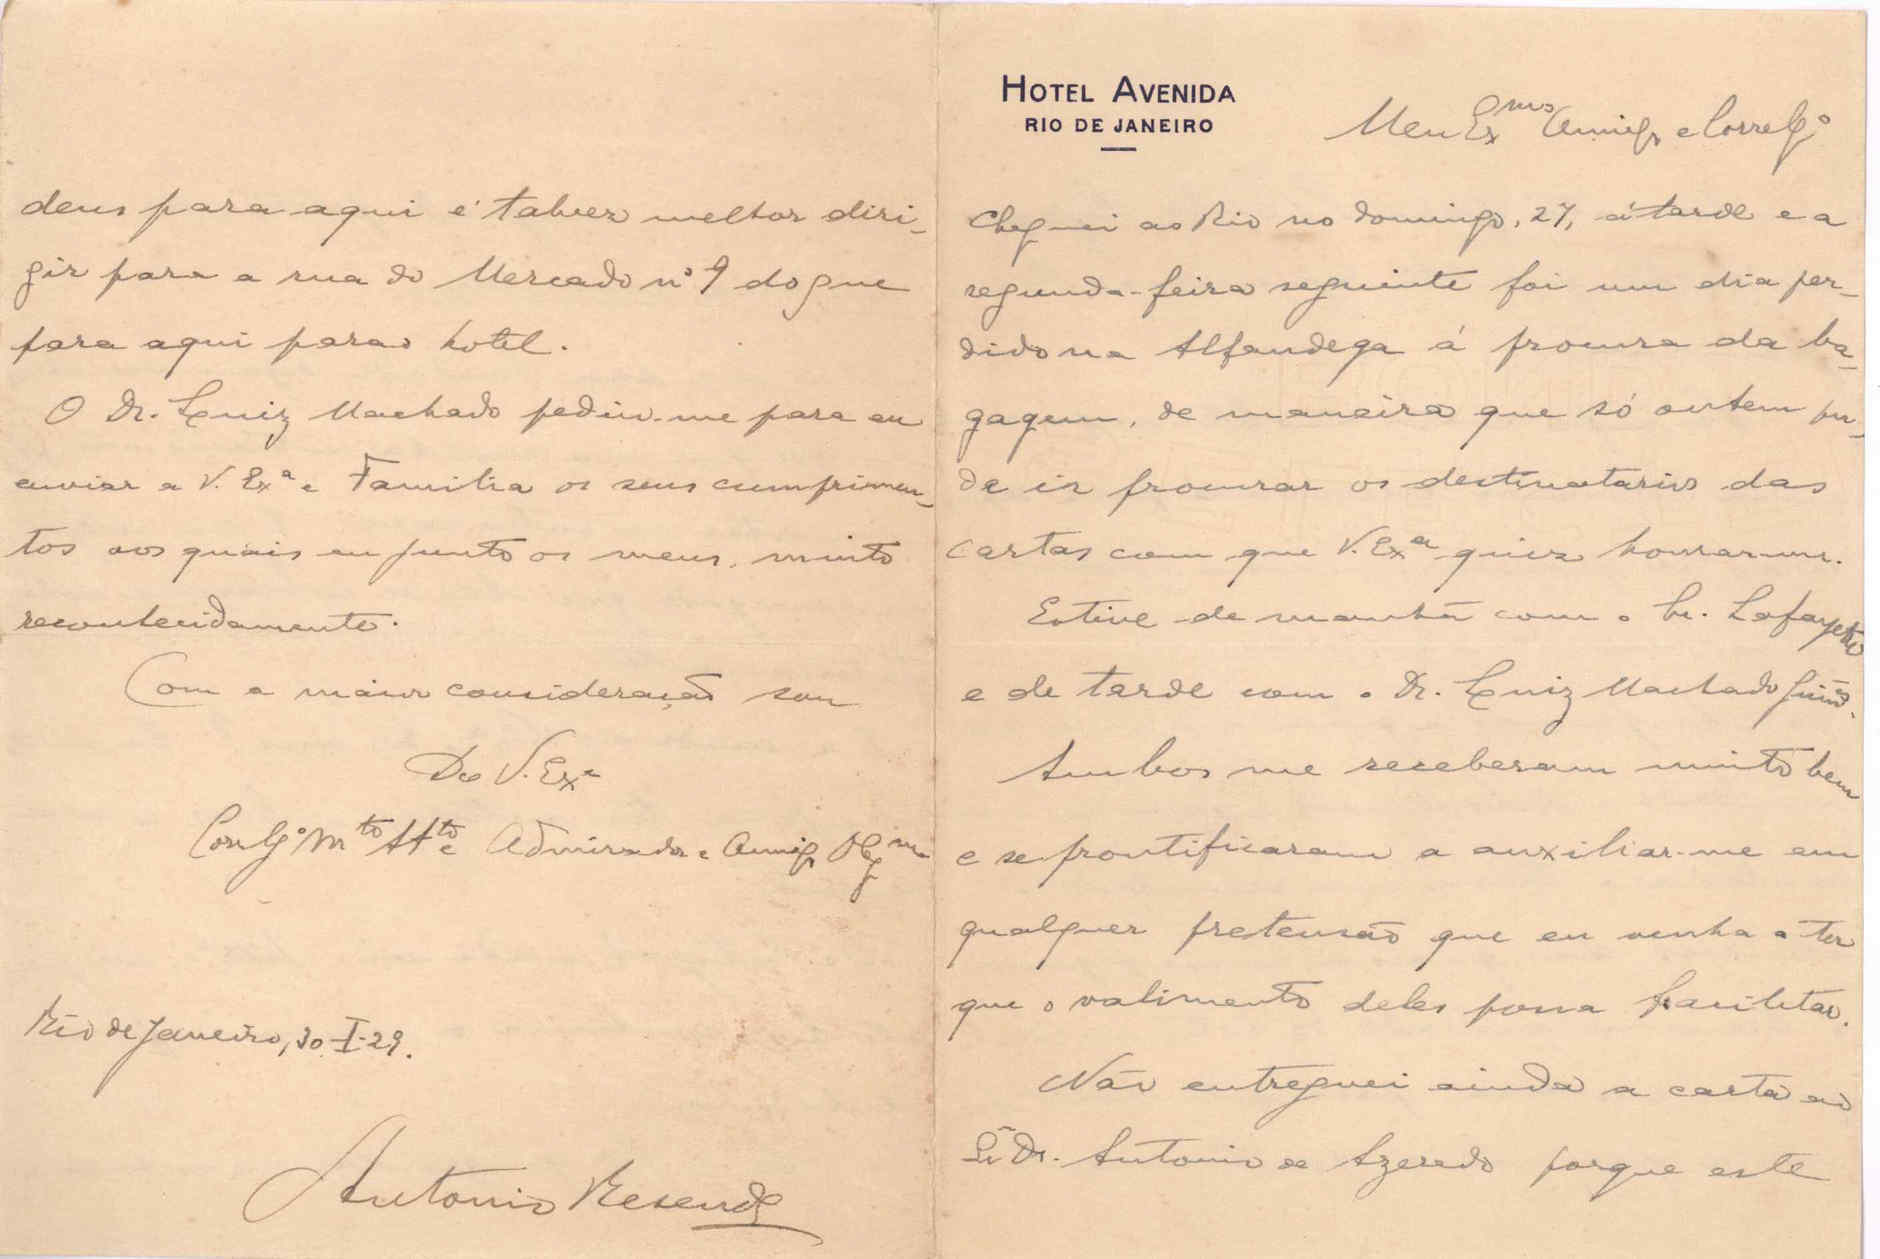 HOTEL AVENIDA
RIO DE JANEIRO
Meu Exmo Amigo e Correlgo
Cheguei ao Rio no domingo, 27, á tarde e a
segunda-feira seguinte foi um dia per-
dido na Alfandega á procura da ba-
gagem, de maneira que só ontem pu-
de ir procurar os destinatarios das
cartas com que V. Exa quiz honrar-me.
Estive de manhã com o Sr. Lafayette
e de tarde com o Dr. Luiz Machado Guim.es
Ambos me receberam muito bem
e se prontificaram a auxiliar-me em
qualquer pretensão que eu venha a ter
que o valimento deles possa facilitar.
Não entreguei ainda a carta ao
Sr Dr. Antonio de Azeredo porque este
deus para aqui é talvez melhor diri-
gir para a rua do Mercado nº 9 do que
para aqui para o hotel.
O Dr. Luiz Machado pediu-me para eu
enviar a V. Exa e Familia os seus cumprimen-
tos aos quais eu junto os meus, muito
reconhecidamente.
Com a maior consideração sou
De V. Exa
Corrlgo Mto Atto e Admirador e Amigo Obgmo
Rio de Janeiro, 30-I-29.
Antonio Resende